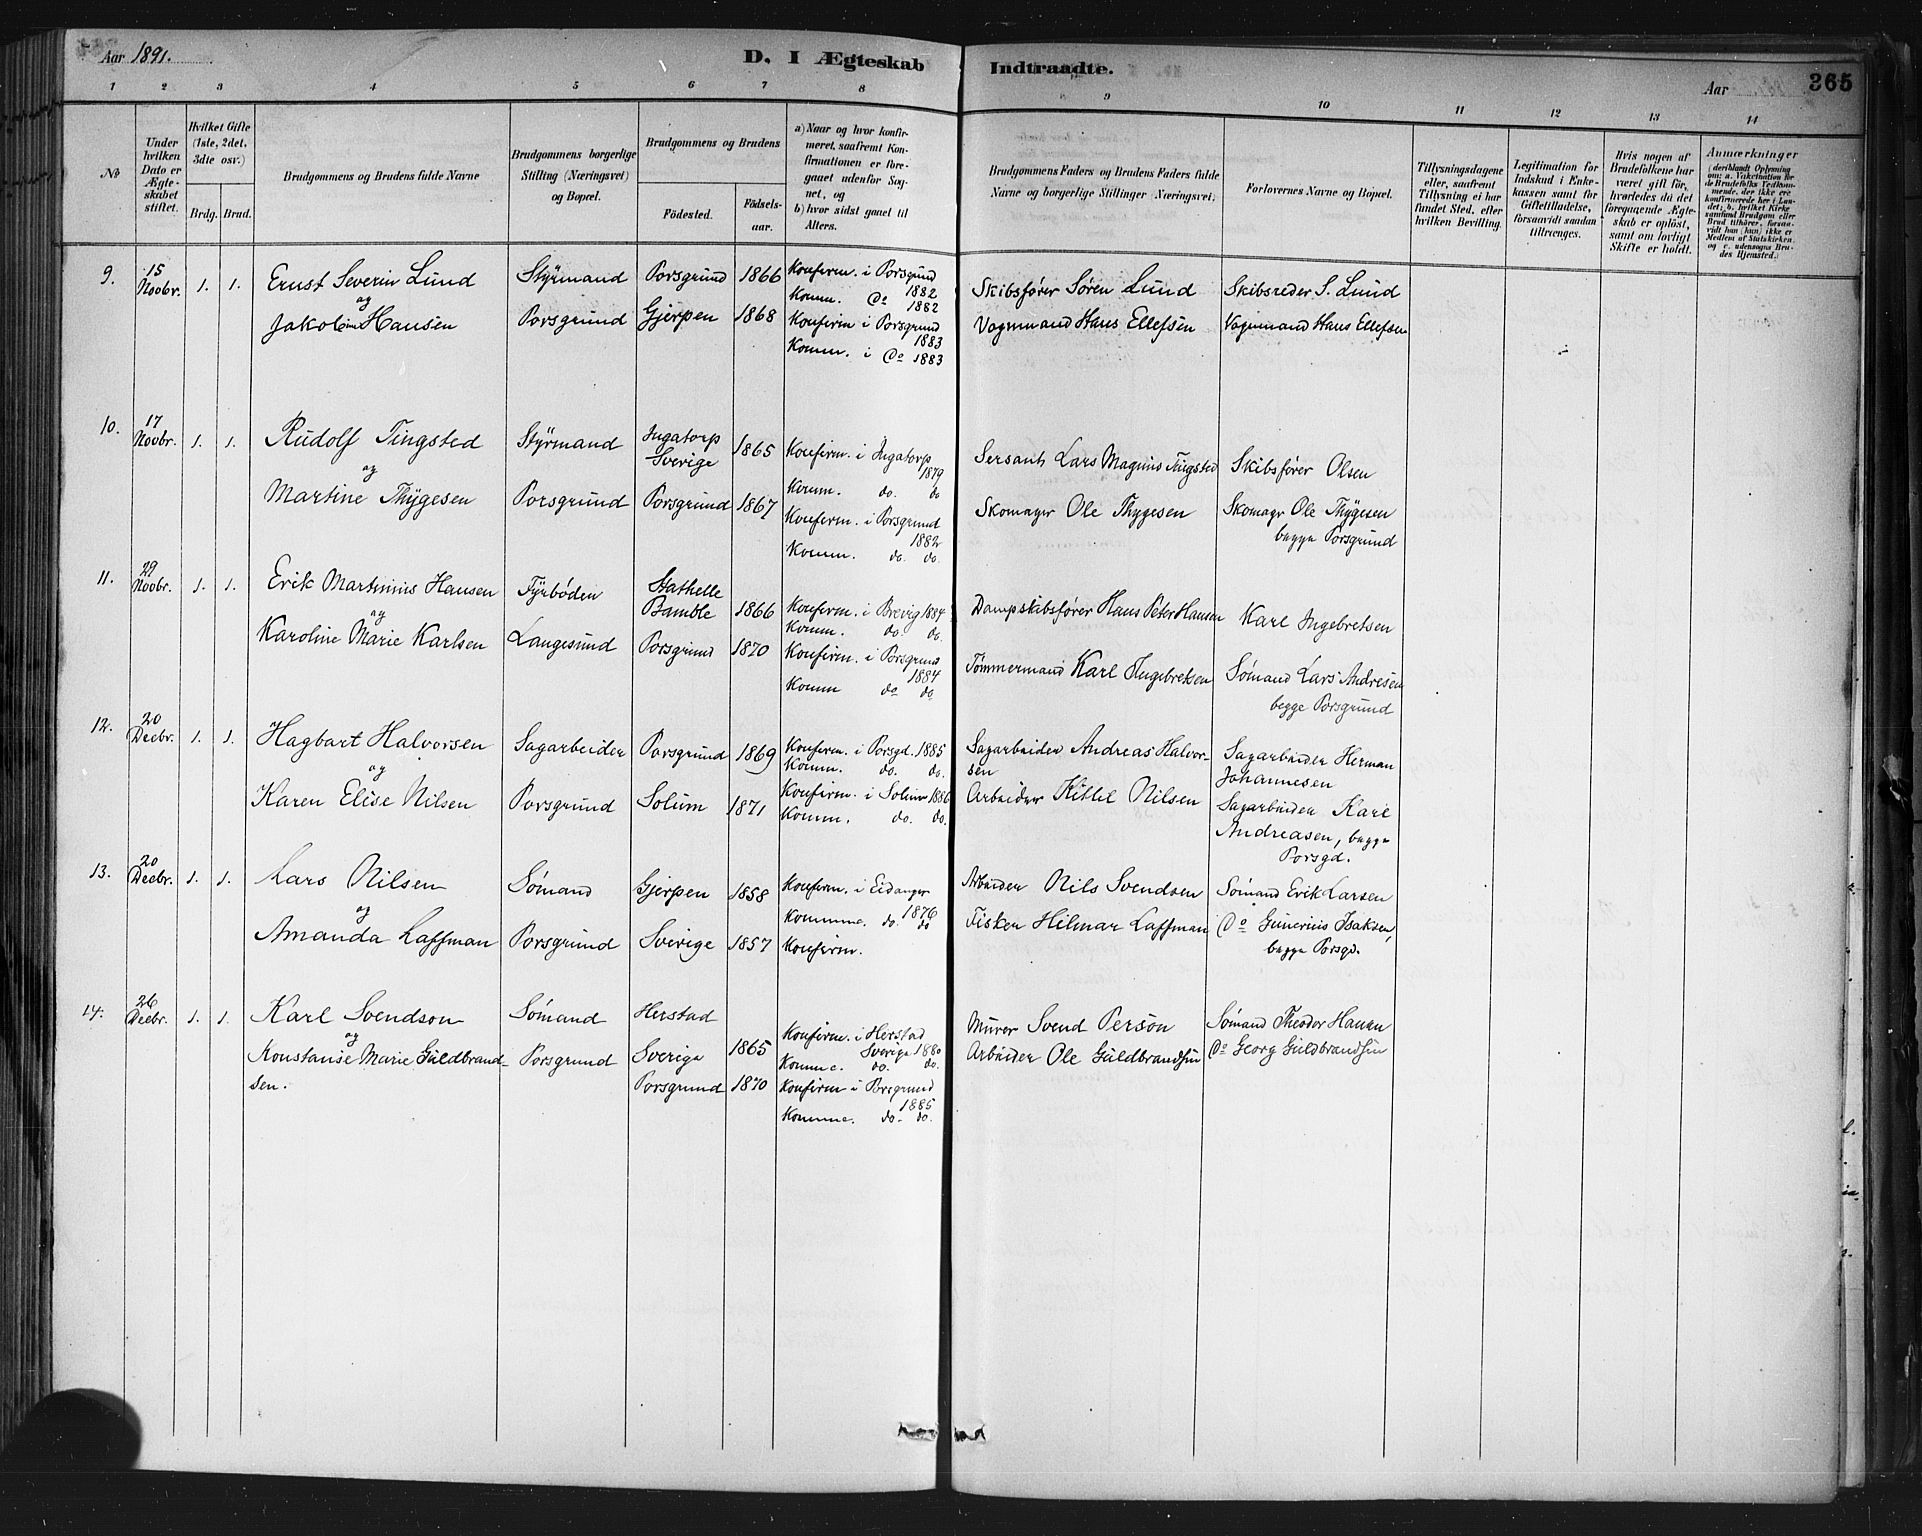 Aar 1891.
D. I Ægteskab Indtraadte.
Aar
365
1 2 3 4 5 6 7 8 9 10 11 12 13 14
No
Under hvilken Dato er Ægteskabet stiftet.
Hvilket Gifte (1ste, 2det, 3die osv.)
Brdg. Brud.
Brudgommens og Brudens fulde Navne
Brudgommens borgerlige Stilling (Næringsvei) og Bopæl.
Brudgommens og Brudens
Födested.
Födsels-aar.
a) Naar og hvor konfirmeret, saafremt Konfirmationen er foregaaet udenfor Sognet, og
b) hvor sidst gaaet til Alters.
Brudgommens Faders og Brudens Faders fulde Navne og borgerlige Stillinger (Næringsvei.
Forlovernes Navne og Bopæl.
Tillysningsdagene eller, saafremt Tillysning ei har fundet Sted, efter hvilken Bevilling.
Legitimation for Indskud i Enkekassen samt for Giftetilladelse, forsaavidt saadan tiltrænges.
Hvis nogen af Brudefolkene har været gift før, hvorledes da det foregaaende Ægteskab er opløst, samt om lovligt Skifte er holdt.
Anmærkninger
(deriblandt Oplysning om: a. Vaksination for de Brudefolks Vedkommende, der ikke ere konfirmerede her i Landet; b. hvilket Kirkesamfund Brudgom eller Brud tilhører, forsaavidt han (hun) ikke er Medlem af Statskirken, og c. udensogns Brudes Hjemsted.)
9. 15 Novbr. 1. 1. Ernst Severin Lund Styrmand Porsgrund 1866 Konfirm. i Porsgrund 1882 Skibsfører Søren Lund Skibsreder S. Lund
Komm. Do 1882
og
Jakobine Hansen Porsgrund Gjerpen 1868 Konfirm i Porsgrund 1883 Vognmand Hans Ellefsen Vognmand Hans Ellefsen
Komm. i Do 1883
10. 17 Novbr. 1. 1. Rudolf Tingsted Styrmand Ingatorp Sverige 1865 Konfirm. i Ingatorp 1879 Sersant Lars Magnus Tingsted Skibsfører Olsen
Komm. do. do
og
Martine Thygesen Porsgrund Porsgrund 1867 Konfirm. i Porsgrund 1882 Skomager Ole Thygesen Skomagr Ole Thygesen
Komm. do. do. begge Porsgrund
11. 29 Novbr. 1. 1. Erik Martinius Hansen Fyrbøder Stathelle Bamble 1866 Konfirm. i Brevig 1884 Dampskibsfører Hans Peter Hansen Karl Ingebretsen
Komm. do. do.
og
Karoline Marie Karlsen Langesund Porsgrund 1870 Konfirm. i Porsgrund 1884 Tømmermand Karl Ingebretsen Sømand Lars Andresen
Komm do do. begge Porsgrund
12. 20 Decbr. 1. 1. Hagbart Halvorsen Sagarbeider Porsgrund 1869 Konfirm. i Porsgd. 1885 Sagarbeider Andreas Halvor- Sagarbeider Herman
Komm. do. do. sen Johannesen
og
Karen Elise Nilsen Porsgrund Solum 1871 Konfirm. i Solum 1886 Arbeider Kittil Nilsen Sagarbeider Karl
Komm. do. do. Andreasen, begge
Porsgd.
13. 20 Decbr. 1. 1. Lars Nilsen Sømand Gjerpen 1858 Konfirm. i Eidanger 1876 Arbeider Nils Svendsen Sømand Erik Larsen
Komme. do. do
og
Amanda Laffman Porsgrund Sverige 1857 Konfirm. Fisker Hilmar Laffman Do Gunerius Isaksen,
begge Porsgd.
14. 26 Decbr. 1. 1. Karl Svendson Sømand Herstad Sverige 1865 Konfirm. i Herstad Sverige 1880 Murer Svend Person Sømand Theodor Hansen
Komme. do. do.
og
Konstanse Marie Guldbrand- Porsgrund Porsgrund 1870 Konfirm i Porsgrund 1885 Arbeider Ole Guldbrandsen Do Georg Guldbrandsen
sen. Komme. do. do.